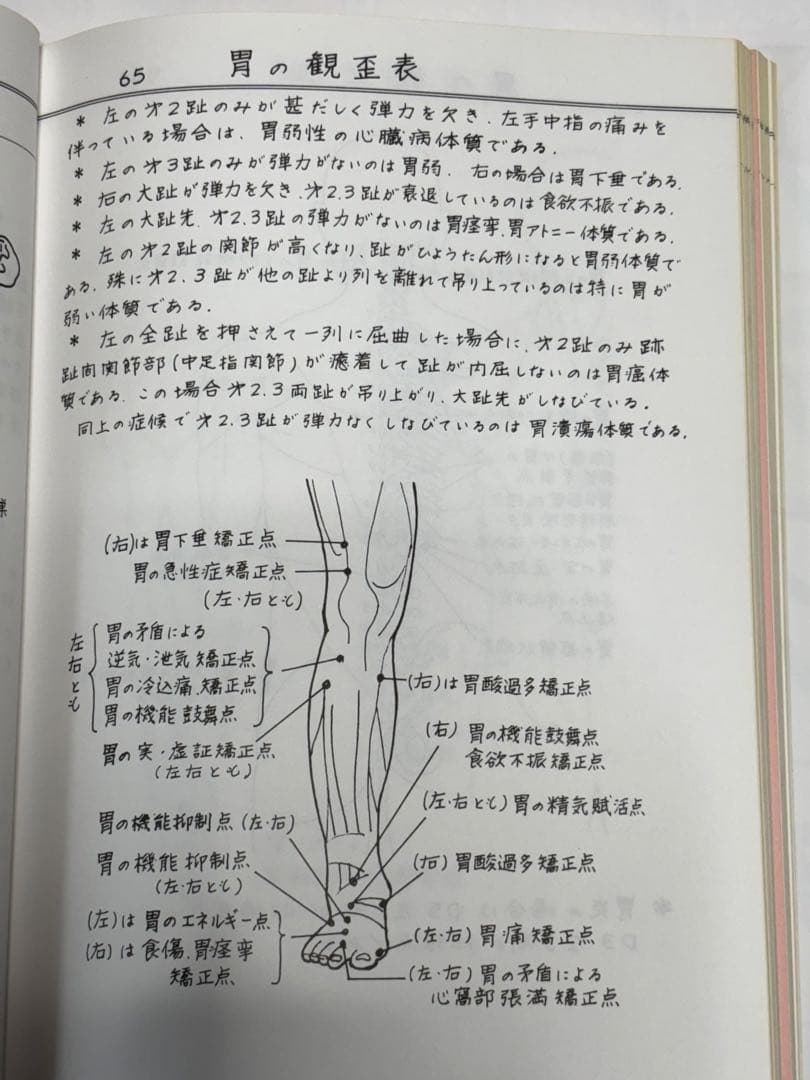 65
胃の観歪表
* 左の才2趾のみが甚だしく弾力を欠き、左手中指の痛みを
伴っている場合は、胃弱性の心臓病体質である。
* 左の才3趾のみが弾力がないのは胃弱、右の場合は胃下垂である。
* 右の大趾が弾力を欠き、才2.3趾が衰退しているのは食欲不振である。
* 左の大趾先、才2.3趾の弾力がないのは胃痙攣、胃アトニー体質である。
* 左の才2趾の関節が高くなり、趾がひょうたん形になると胃弱体質で
ある。殊に才2.3趾が他の趾より列を離れて吊り上っているのは特に胃が
弱い体質である。
* 左の全趾を押さえて一列に屈曲した場合に、才2趾のみ跡
趾間関節部(中足指関節)が癒着して趾が内屈しないのは胃癌体
質である。この場合才2.3両趾が吊り上がり、大趾先がしなびている。
同上の症候で才2.3趾が弾力なくしなびているのは胃潰瘍体質である。
(右)は胃下垂矯正点
胃の急性症矯正点
(左・右とも)
左右とも
胃の矛盾による
逆気・泄気矯正点
胃の冷込痛、矯正点
胃の機能鼓舞点
胃の実・虚証矯正点
(左右とも)
胃の機能抑制点(左・右)
胃の機能抑制点
(左・右とも)
(左)は胃のエネルギー点
(右)は食傷、胃痙攣
矯正点
(右)は胃酸過多矯正点
(右) 胃の機能鼓舞点
食欲不振矯正点
(左・右とも)胃の精気賦活点
(右)胃酸過多矯正点
(左・右)胃痛矯正点
(左・右)胃の矛盾による
心窩部張満矯正点